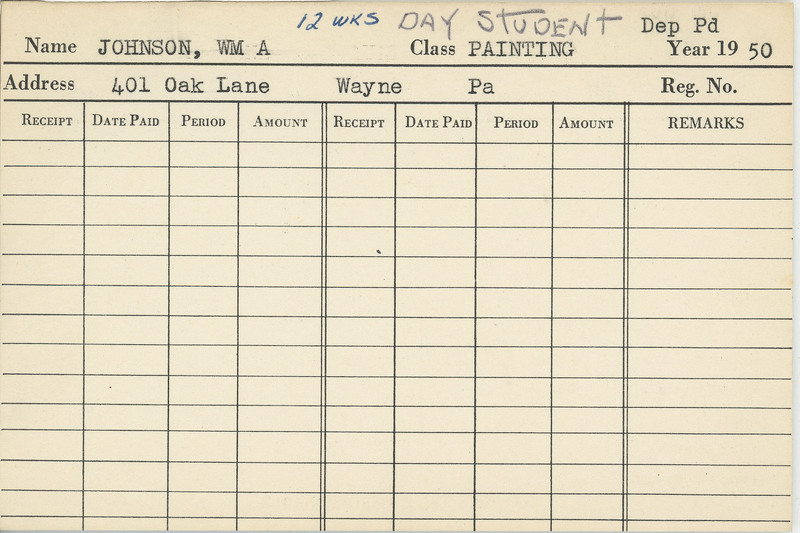 12 WKS DAY STUDENT Dep Pd
Name JOHNSON, WM A Class PAINTING Year 19 50
Address 401 Oak Lane Wayne Pa Reg. No.
RECEIPT DATE PAID PERIOD AMOUNT RECEIPT DATE PAID PERIOD AMOUNT REMARKS